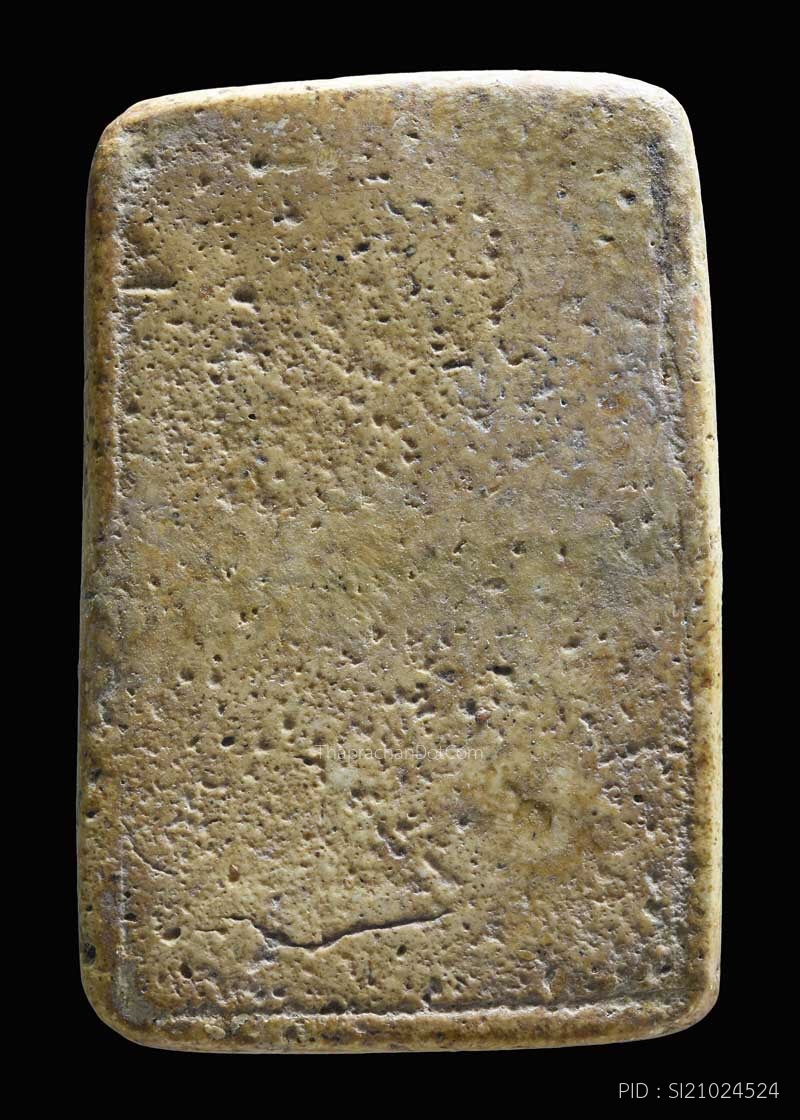 ThaprachanDotCom
PID : SI21024524